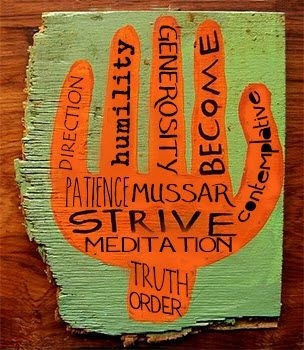 DIRECTION
humility
GENEROSITY
BECOME
contemplative
PATIENCE MUSSAR
STRIVE
MEDITATION
TRUTH
ORDER